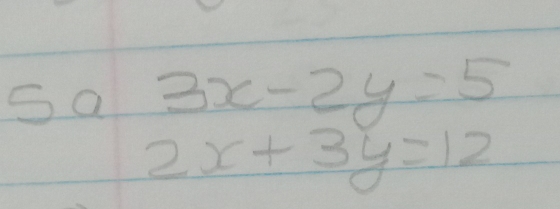 5a 3x-2y=5
2x+3y=12